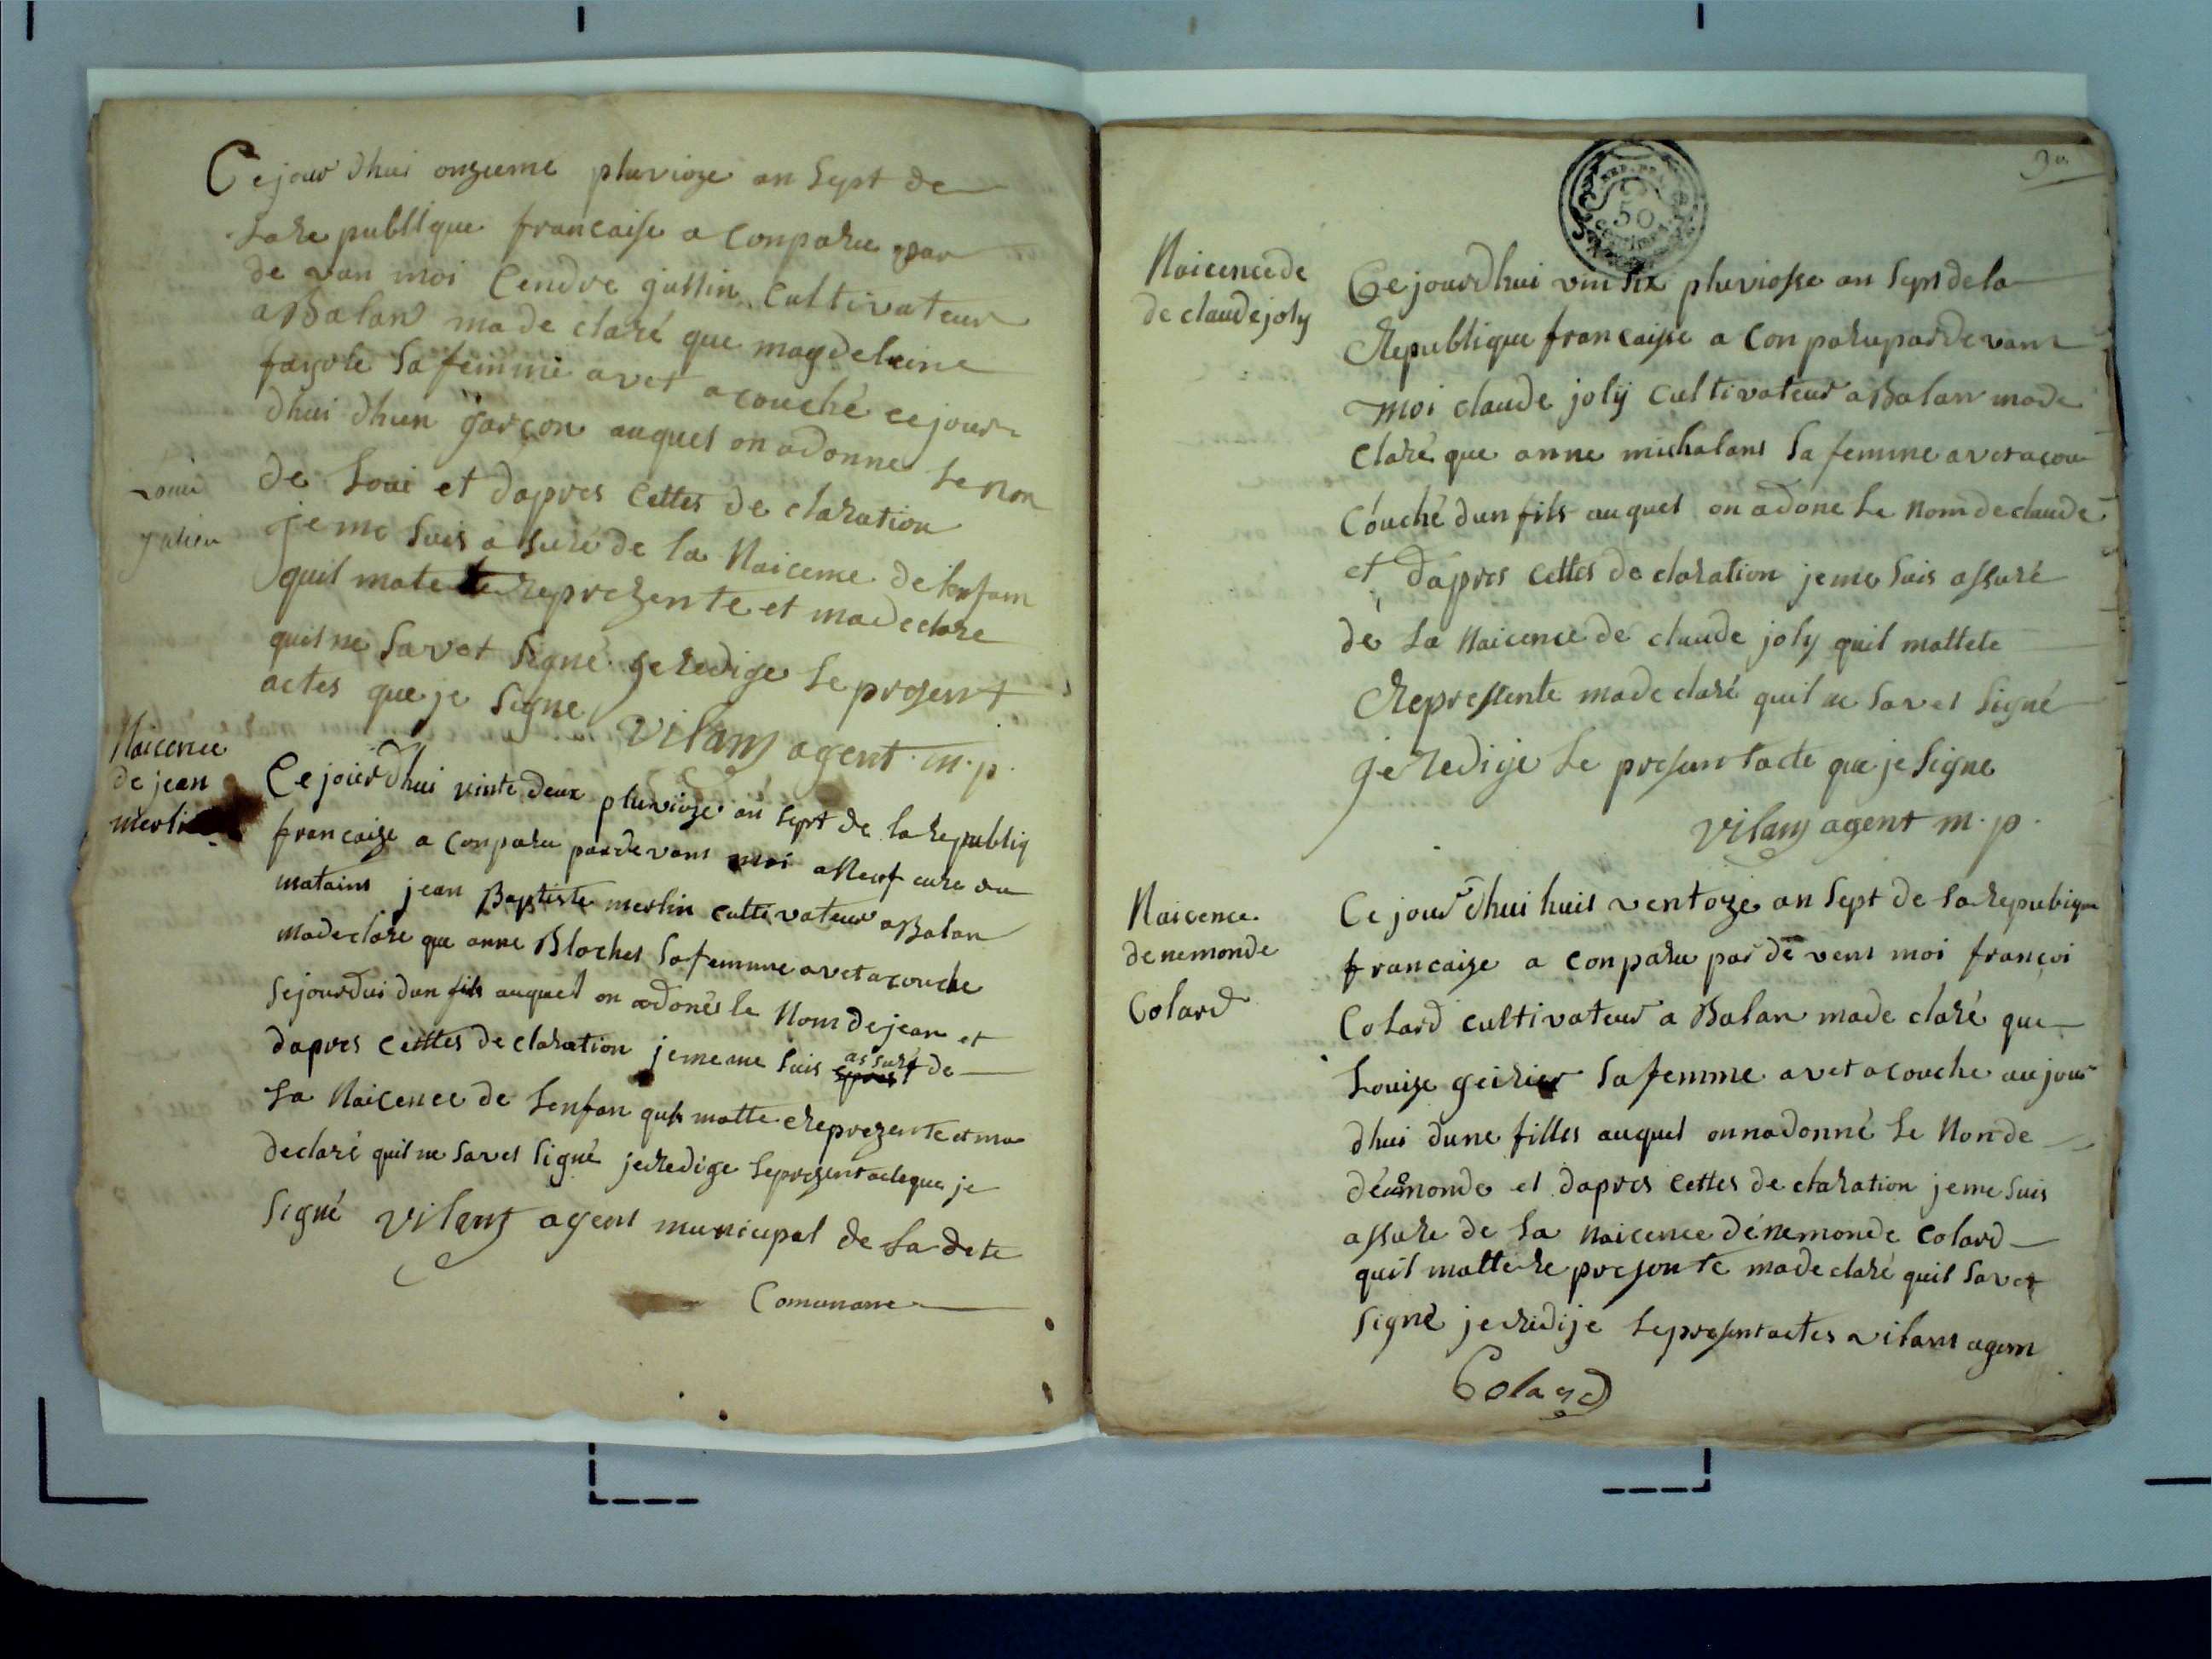 Cejour dhui onzieme pluvioze an sept de
la republique francaise a conparu par
de van moi Cendre gullin cultivateur
a Balan ma de claré que magdeleine
fayole sa femme avet acouché ce jour
dhui dhun garçon auquel on a donne le non
de Loui et dapres cettes de claration
je me suis a suré de la Naicence de lenfam
quil mate le reprezente et ma declare
quil ne savet signé je redige le presen t
actes que je signe
vilans agent m. p.
Loui
Naicence
de jean
merlin
Ce jourdhui vinte deux pluvioze an sept de la republiq
francaize a conparu pardevans moi a Neuf eure du
matains jean Baptiste merlin cultivateur a Balan
ma declare que anne Bloches sa femme avet acouche
se jourdui dun fils auquel on adonés le Nom de jean et
dapres cettes de claration je me me suis assuré de
La Naicence de Lenfan quil matte reprezente et ma
declaré quil ne savet signé je redige le prezent acte que je
signé vilans agent municipal de la dete
Comunane
3e
50
Naicence de
de claude joly
Ce jourdhui vin six pluviosse an sept de la
Republique francaise a conparu pardevant
moi claude joly cultivateur a Balan ma de
claré que anne michalans sa femme avet acou
couché dun fils auquel on adone le nom de claude
et dapres cettes de claration je me suis assuré
de la Naicence de claude joly quil mattete
Repressente ma de claré quil ne savet signé
je redige le presant acte que je signe
vilans agent m. p.
Naicence
denemonde
Colard
Ce jour dhui huit ventoze an sept de la repubique
francaize a conparu par de vens moi françoi
Colard cultivateur a Balan ma de claré que
Louise geirier sa femme avet acouche aujour
dhui dune filles auquel onnadonné le Non de
démonde et dapres cettes de claration je me suis
assure de la naicence dénemonde Colard
quil matte represente ma de claré quil savet
signé je redije le present actes vilans agem
Colard